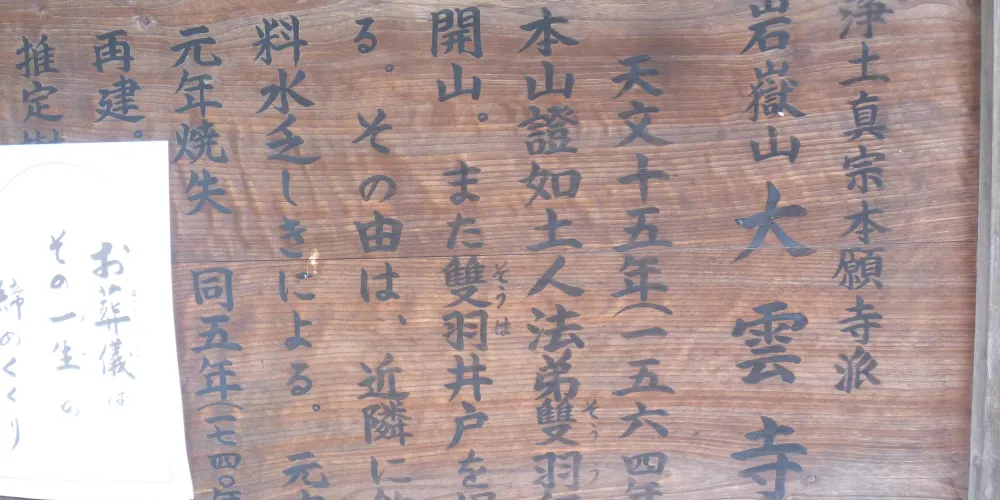 浄土真宗本願寺派
岩嶽山 大雲寺
天文十五年（一五六四年
本山證如土人法弟雙羽
そう
開山。また雙羽井戸を
そうは
る。その由は、近隣に
料水乏しきによる。元
元年焼失 同五年（一七四〇年
再建。
推定樹
お葬儀は
その一生の
締めくくり